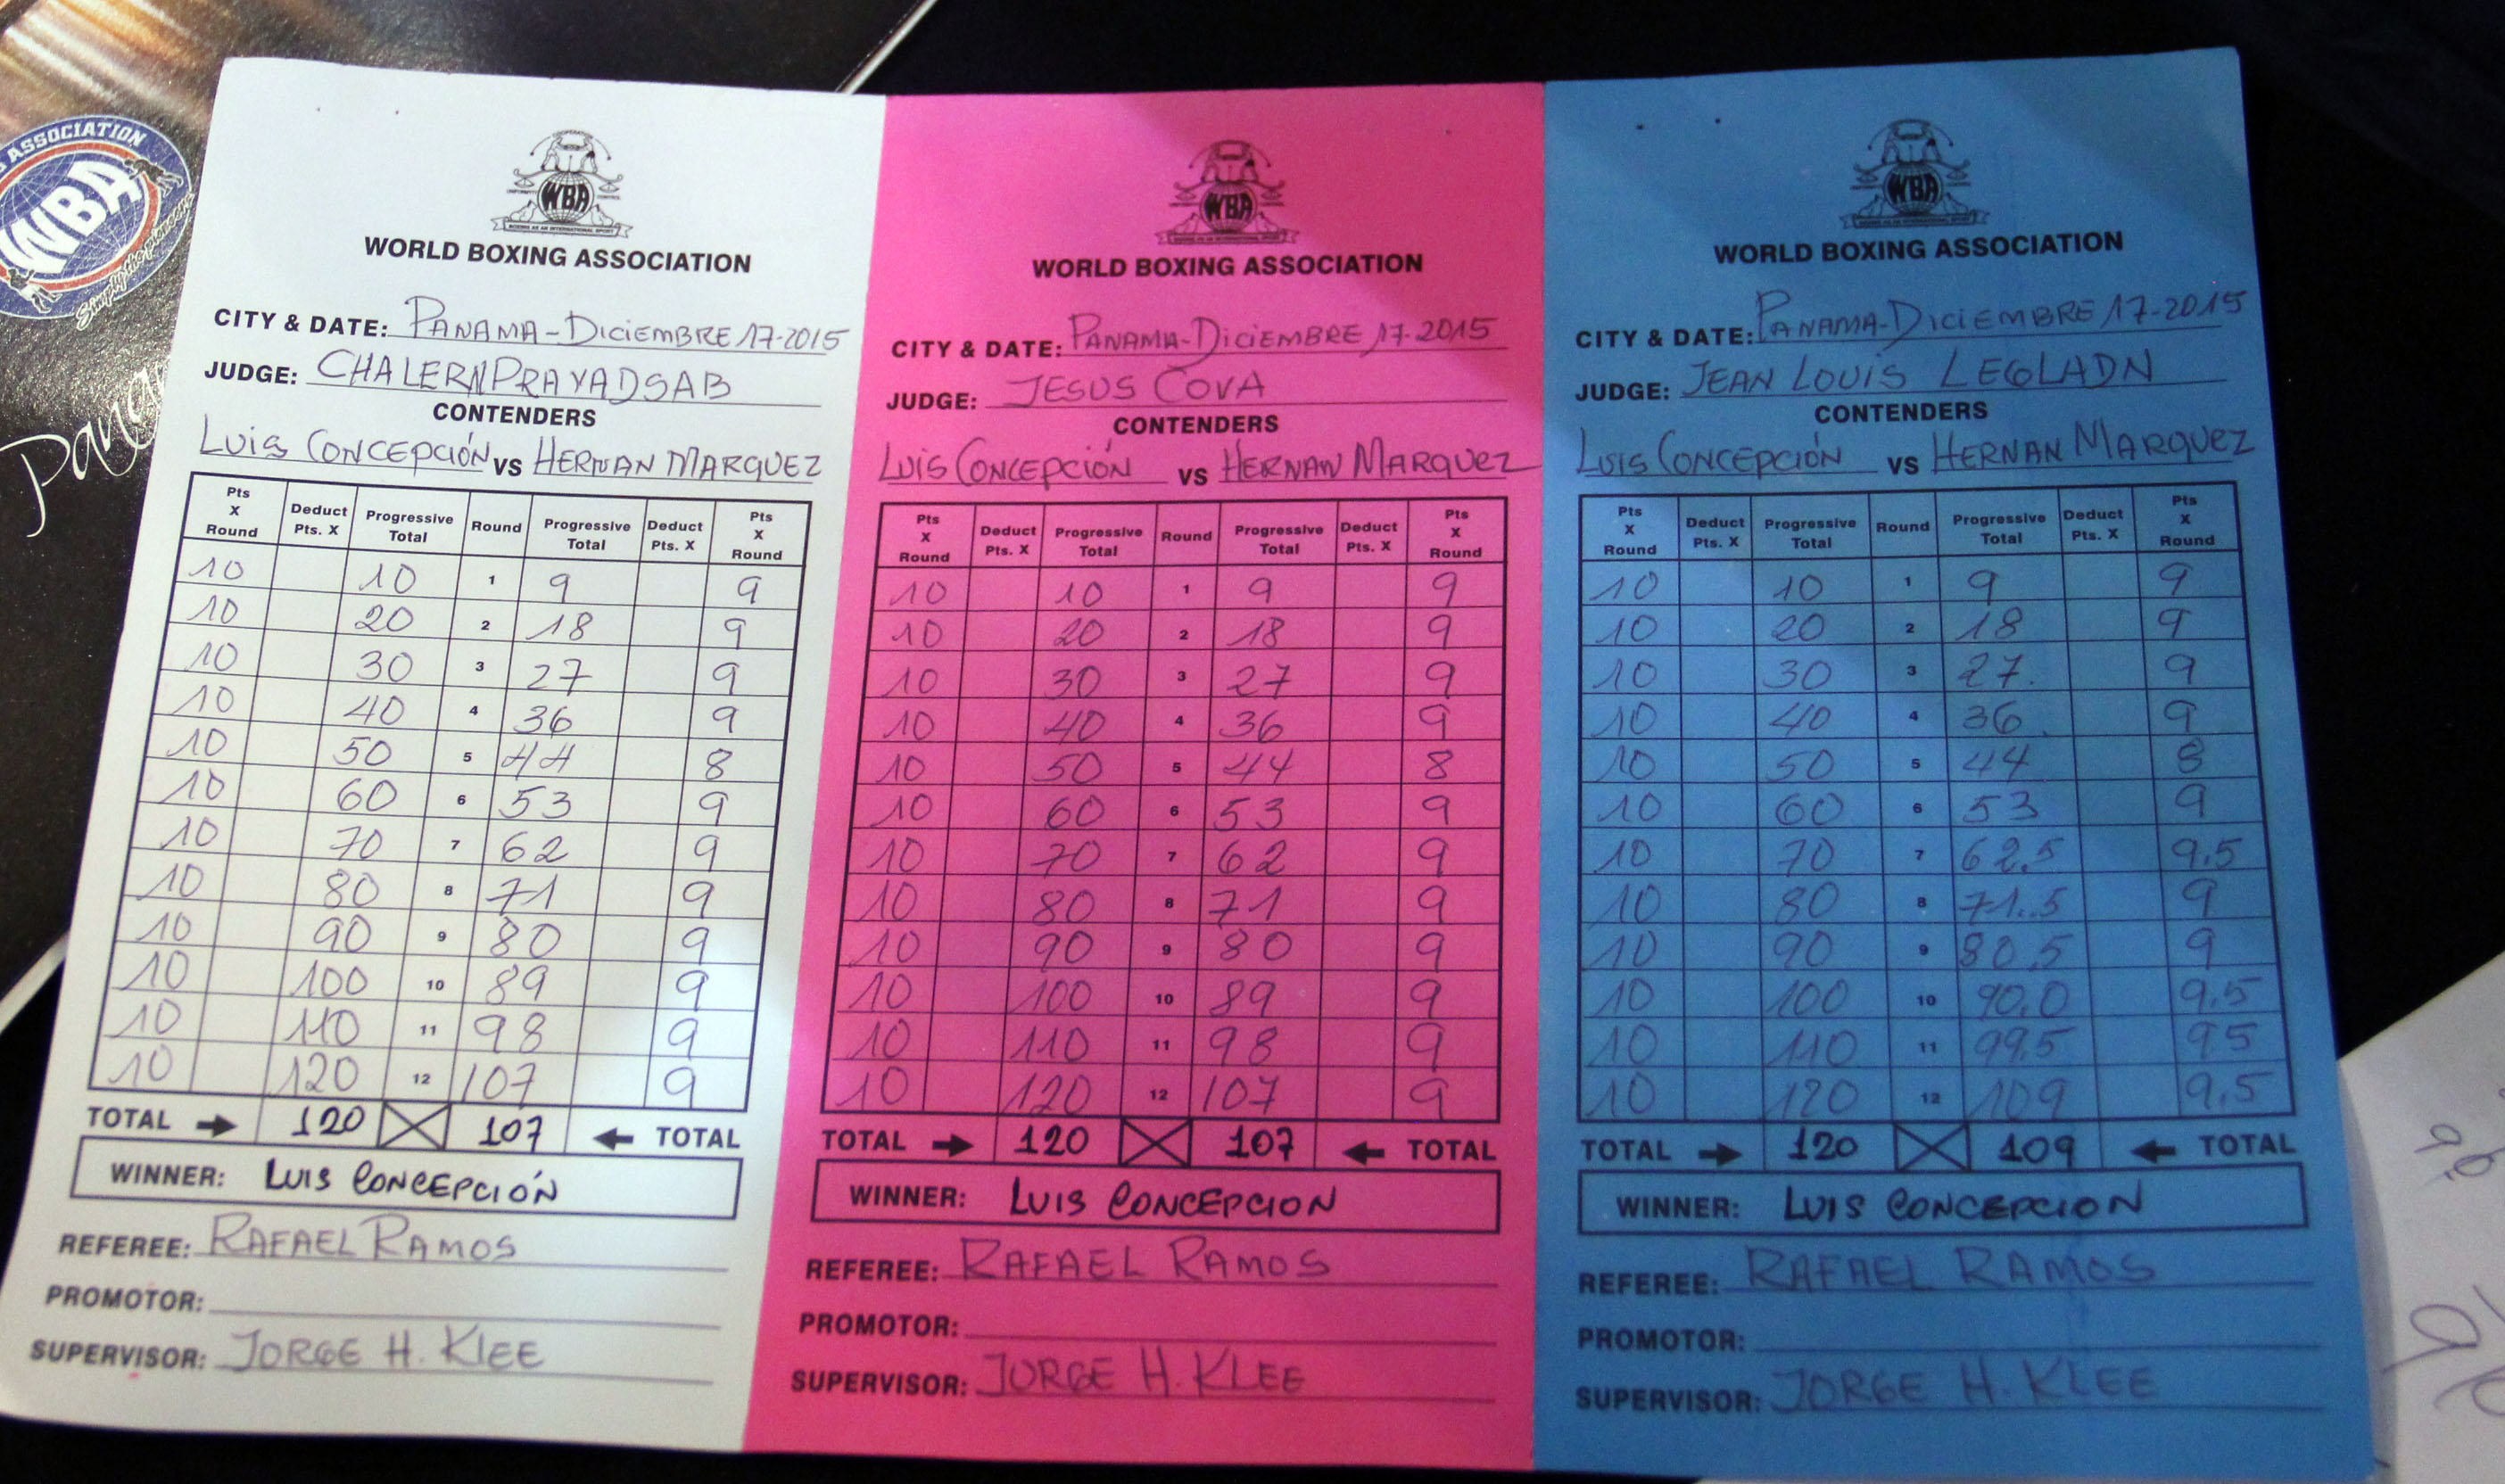 ASSOCIATION
WBA
Simply the pioneers
WBA
WORLD BOXING ASSOCIATION
CITY & DATE: PANAMA-DICIEMBRE 17-2015
JUDGE: CHALERN PRAYADSAB
CONTENDERS
LUIS CONCEPCIÓN VS HERNAN MARQUEZ
Pts X Round Deduct Pts. X Progressive Total Round Progressive Total Deduct Pts. X Pts X Round
10 10 1 9 9
10 20 2 18 9
10 30 3 27 9
10 40 4 36 9
10 50 5 44 8
10 60 6 53 9
10 70 7 62 9
10 80 8 71 9
10 90 9 80 9
10 100 10 89 9
10 110 11 98 9
10 120 12 107 9
TOTAL 120 107 TOTAL
WINNER: LUIS CONCEPCIÓN
REFEREE: RAFAEL RAMOS
PROMOTOR:
SUPERVISOR: JORGE H. KLEE
WBA
WORLD BOXING ASSOCIATION
CITY & DATE: PANAMA-DICIEMBRE 17-2015
JUDGE: JESUS COVA
CONTENDERS
LUIS CONCEPCIÓN VS HERNAN MARQUEZ
Pts X Round Deduct Pts. X Progressive Total Round Progressive Total Deduct Pts. X Pts X Round
10 10 1 9 9
10 20 2 18 9
10 30 3 27 9
10 40 4 36 9
10 50 5 44 8
10 60 6 53 9
10 70 7 62 9
10 80 8 71 9
10 90 9 80 9
10 100 10 89 9
10 110 11 98 9
10 120 12 107 9
TOTAL 120 107 TOTAL
WINNER: LUIS CONCEPCION
REFEREE: RAFAEL RAMOS
PROMOTOR:
SUPERVISOR: JORGE H. KLEE
WBA
WORLD BOXING ASSOCIATION
CITY & DATE: PANAMA-DICIEMBRE 17-2015
JUDGE: JEAN LOUIS LEGLADN
CONTENDERS
LUIS CONCEPCIÓN VS HERNAN MARQUEZ
Pts X Round Deduct Pts. X Progressive Total Round Progressive Total Deduct Pts. X Pts X Round
10 10 1 9 9
10 20 2 18 9
10 30 3 27. 9
10 40 4 36. 9
10 50 5 44 8
10 60 6 53 9
10 70 7 62.5 9.5
10 80 8 71.5 9
10 90 9 80.5 9
10 100 10 90.0 9.5
10 110 11 99.5 9.5
10 120 12 109 9.5
TOTAL 120 109 TOTAL
WINNER: LUIS CONCEPCION
REFEREE: RAFAEL RAMOS
PROMOTOR:
SUPERVISOR: JORGE H. KLEE